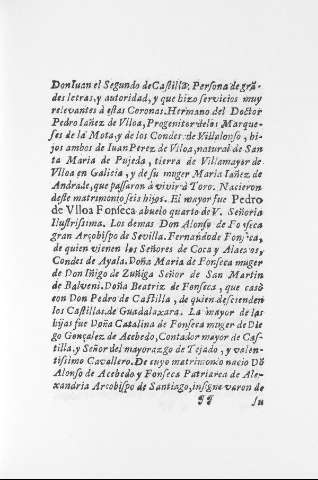 Don Iuan el Segundo de Castilla: Persona de grã-
des letras, y autoridad, y que hizo servicios muy
relevantes à estas Coronas. Hermano del Doctor
Pedro Iañez de Vlloa, Progenitor de los Marque-
ses de la Mota, y de los Condes de Villalonso, hi-
jos ambos de Iuan Perez de Vlloa, natural de San
ta Maria de Pujeda, tierra de Villamayor de
Vlloa en Galicia, y de su muger Maria Iañez de
Andrade, que passaron à vivir à Toro. Nacieron
deste matrimonio seis hijos. El mayor fue Pedro
de Vlloa Fonseca abuelo quarto de V. Señoria
Ilustrissima. Los demas Don Alonso de Fonseca
gran Arçobispo de Sevilla. Fernando de Fonseca,
de quien vienen los Señores de Coca y Alaexos,
Condes de Ayala. Doña Maria de Fonseca muger
de Don Iñigo de Zuñiga Señor de San Martin
de Balveni. Doña Beatriz de Fonseca, que casò
con Don Pedro de Castilla, de quien descienden
los Castillas de Guadalaxara. La mayor de las
hijas fue Doña Catalina de Fonseca muger de Die
go Gonçalez de Acebedo, Contador mayor de Cas-
tilla, y Señor del mayorazgo de Tejado, y valen-
tissimo Cavallero. De cuyo matrimonio nacio Dõ
Alonso de Acebedo y Fonseca Patriarca de Ale-
xandria Arçobispo de Santiago, insigne varon de
¶¶ su